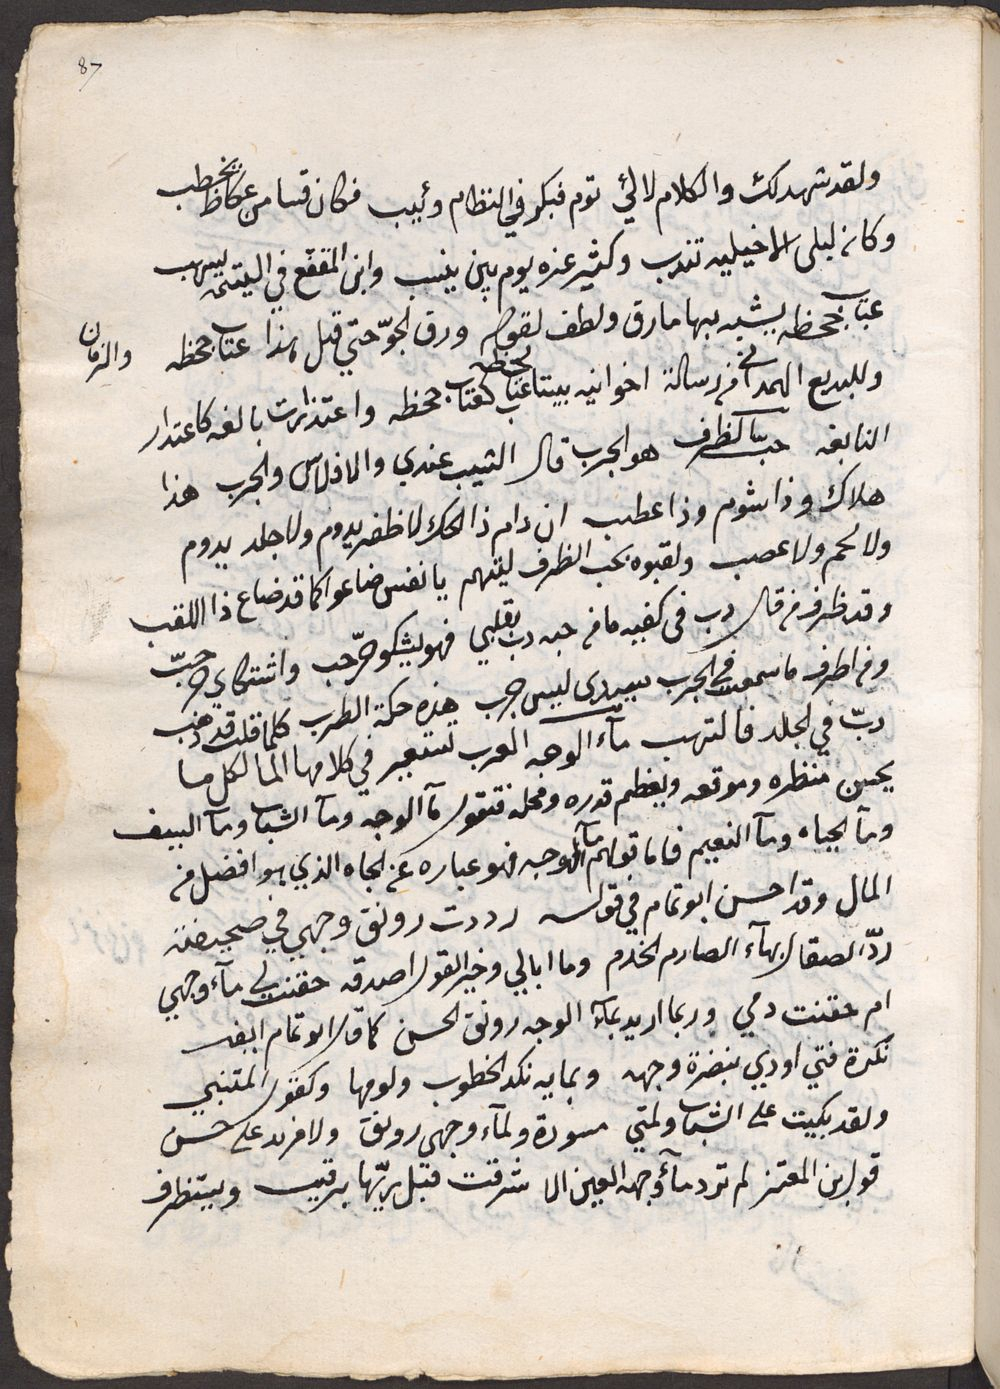 87
ولقد شهدتك والكلام لالئ توم فبكر في النظام وثيب فكان قسا من عكاظ يخطب
وكان ليلى الاخيلية تندب وكثير عزه يوم بين ينسب وابن المقفع في اليتيمة يسهب
عتاب جحظه يشبه بها مارق ولطف لقوله ورق الجوّ حتي قيل هذا عتاب جحظه والزمان
وللبديع الهمداني من رسالة اخوانيه بيننا عتاب لحظه كعتاب جحظه واعتذارات بالغه كاعتدار
النابغه حبّ الظرف هو الجرب قال الشيب عندي والافلاس والجرب هذا
هلاك وذا شوم وذا عطب ان دام ذا الحك لا ظفر يدوم ولا جلد يدوم
ولا لحم ولا عصب ولقبوه بحب الظرف ليتهم يا نفس ضاعوا كما قد ضاع ذا اللقب
وقد ظرف من قال دب في كفيه ما من حبه دب بقلبي فهو يشكو حرّ حب واشتكاي حرّ حبّ
ومن اطرف ما سمعت في الجرب سيدى ليس جرب هذه حكة الطرب كلما قلت قد ذهب
دبّ في الجلد فالتهب مآء الوجه العرب تستعير في كلامها الما لكل ما
يحسن منظره وموقعه ويعظم قدره ومحله فتقول مآ الوجه ومآ الشباب ومآ السيف
ومآ الحياه ومآ النعيم فاما قولهم مآ الوجه فهو عباره عن الجاه الذي هو افضل من
المال وقد احسن ابو تمام في قوله رددت رونق وجهي في صحيفته
ردّ الصقال بهآء الصارم الخذم وما ابالي وخير القول اصدقه حقنت لي مآء وجهي
ام حقنت دمي وربما اريد بمآء الوجه رونق الحسن كما قال ابو تمام ايضا
نكرة فتي اودي بنضرة وجهه وبمايه نكد الخطوب ولومها وكقول المتنبي
ولقد بكيت على الشباب ولمتي مسودة ولمآء وجهي رونق ولا مزيد على حسن
قول ابن المعتز لم ترد مآء وجهه العين الا شرقت قبل ريّها برقيب ويستظرف